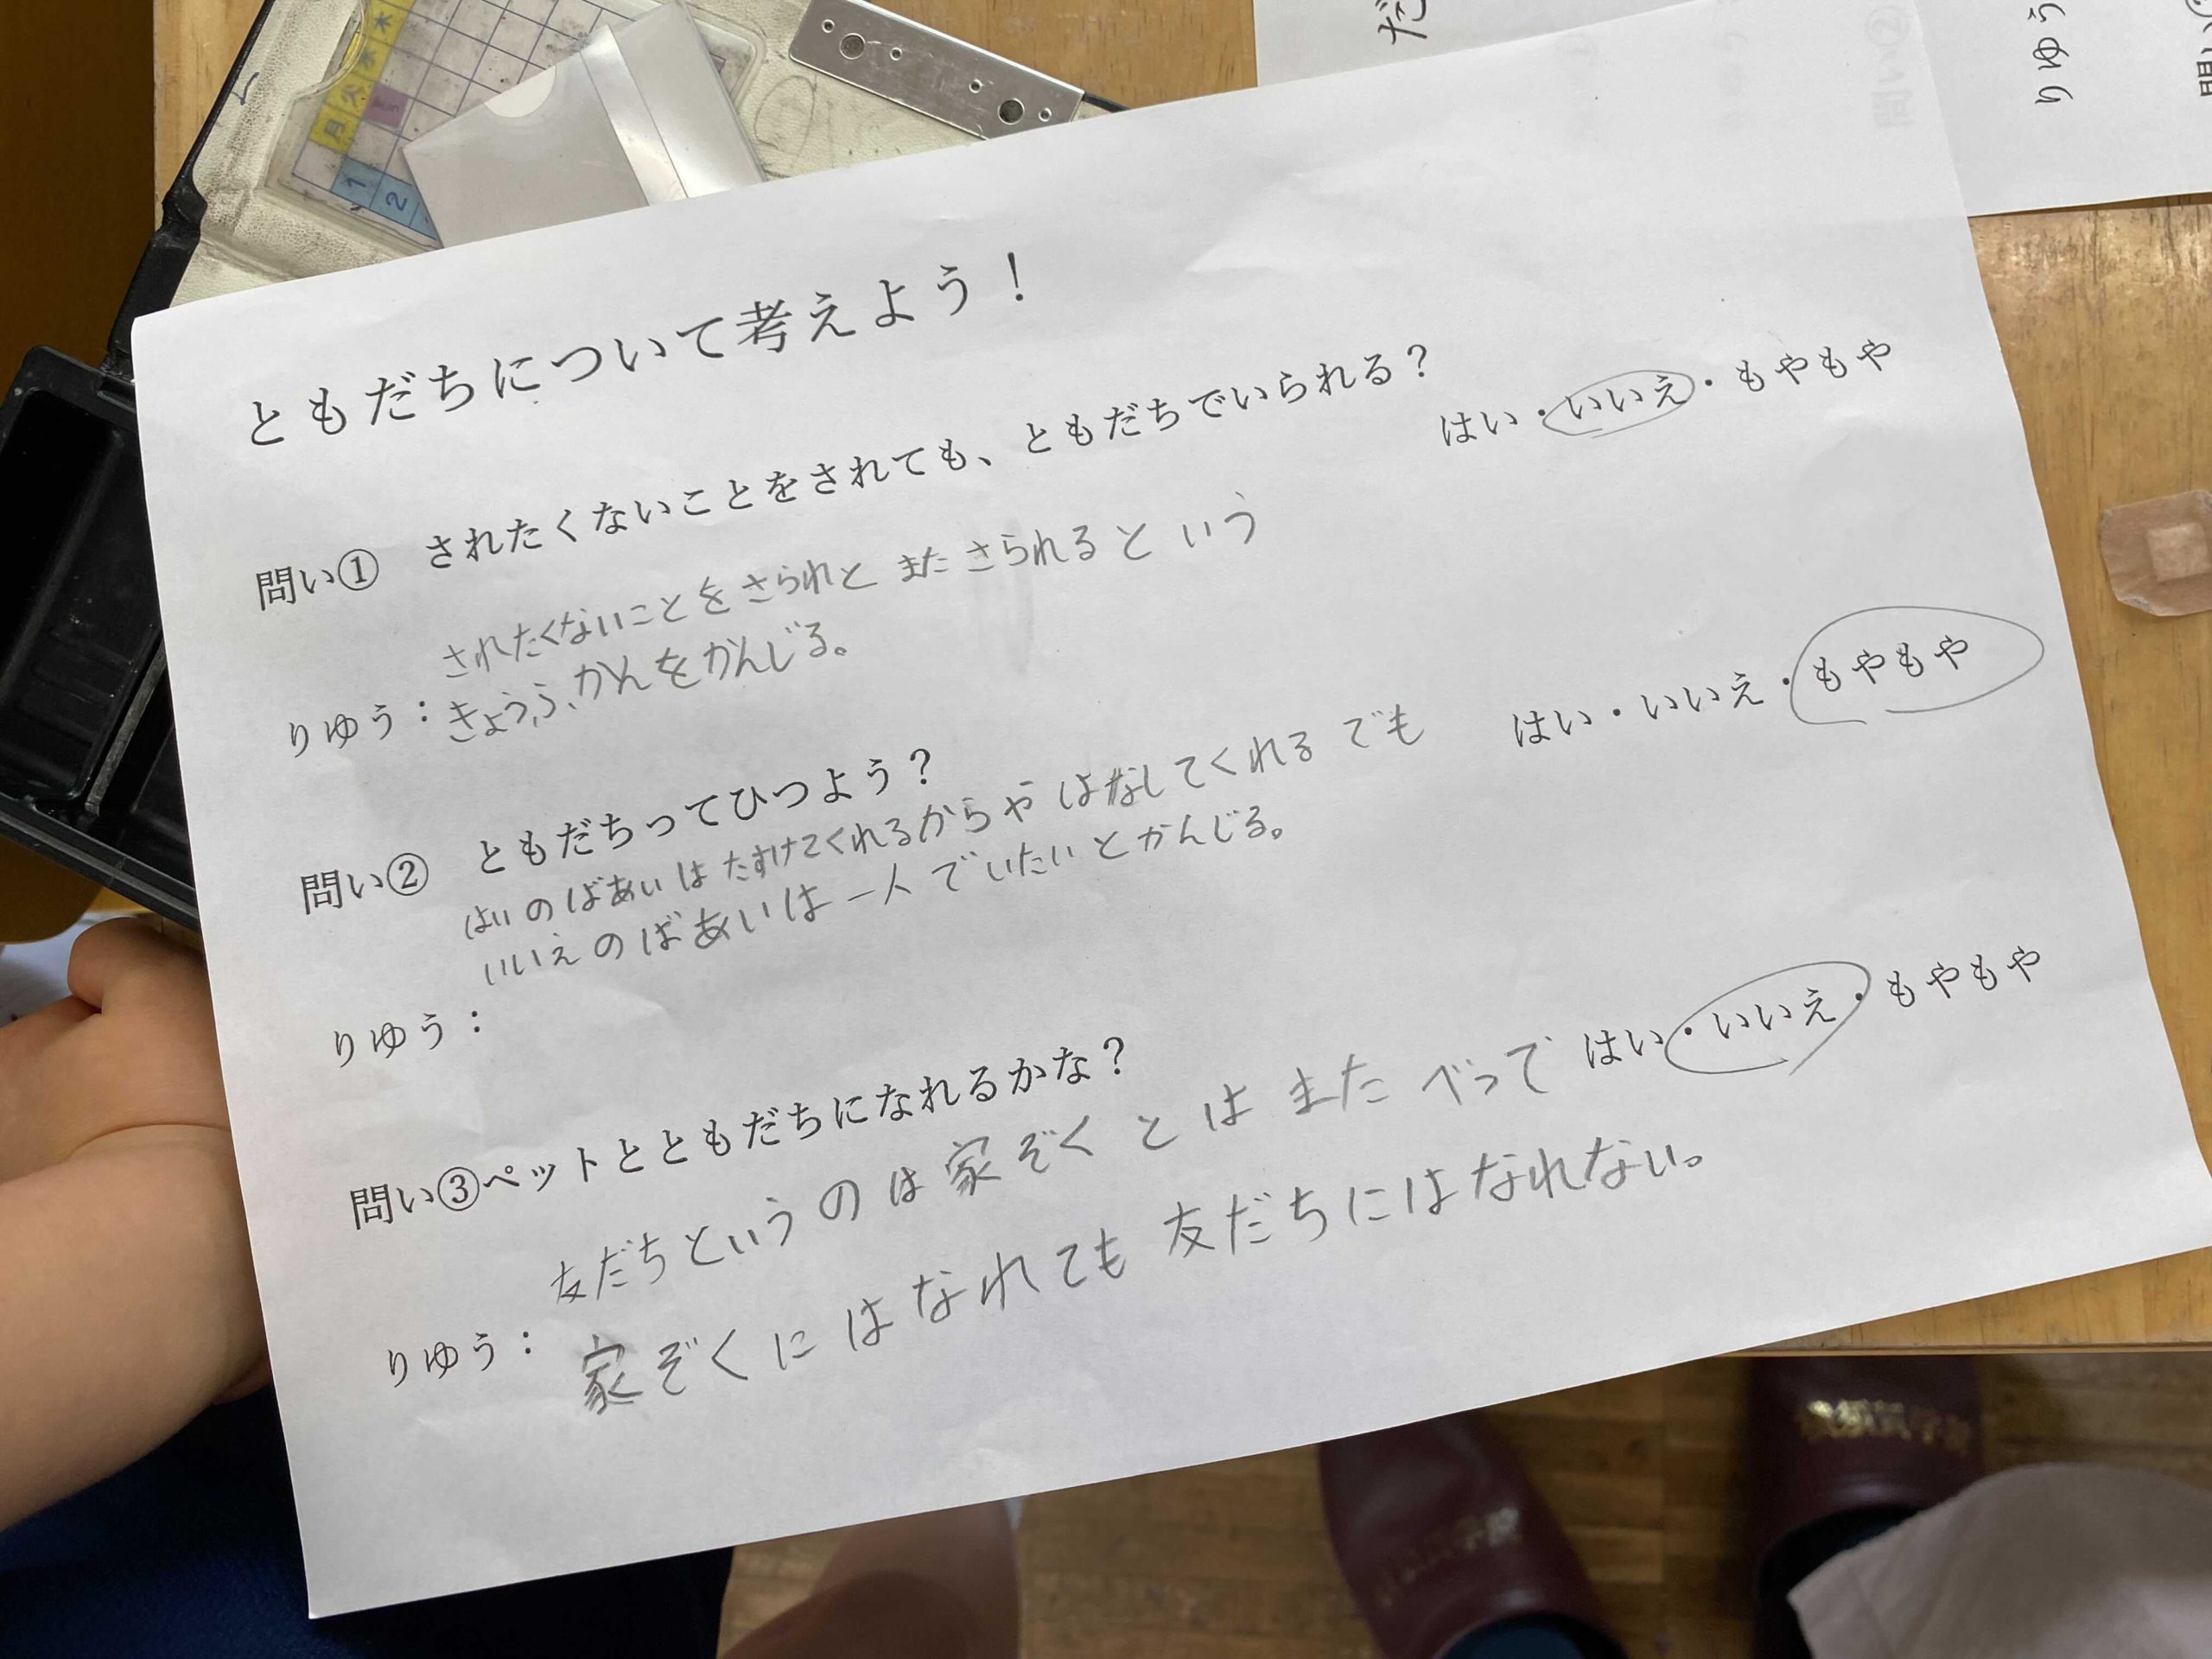 ともだちについて考えよう！
問い① されたくないことをされても、ともだちでいられる？
はい・いいえ・もやもや
されたくないことをさられと またさられるという
りゆう：きょうふ、かんをかんじる。
問い② ともだちってひつよう？
はい・いいえ・もやもや
はいのばあいはたすけてくれるからや はなしてくれる でも
いいえのばあいは一人でいたいとかんじる。
りゆう：
問い③ペットとともだちになれるかな？
はい・いいえ・もやもや
友だちというのは家ぞくとはまたべって
りゆう：家ぞくにはなれても友だちにはなれない。
月火水木
1
2
だ
りゆう
問い